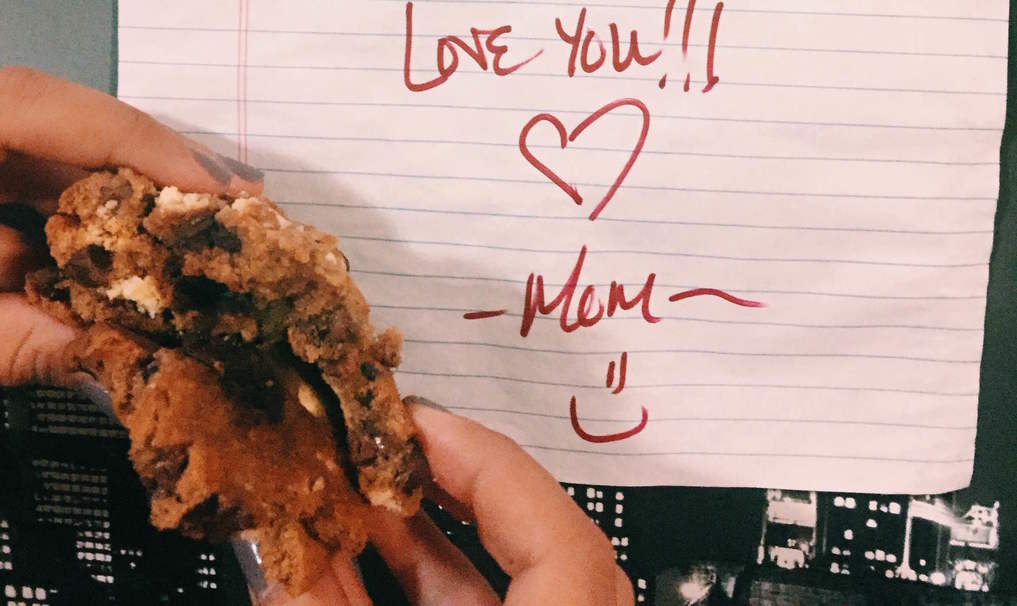 LOVE YOU!!!
- Mom ~